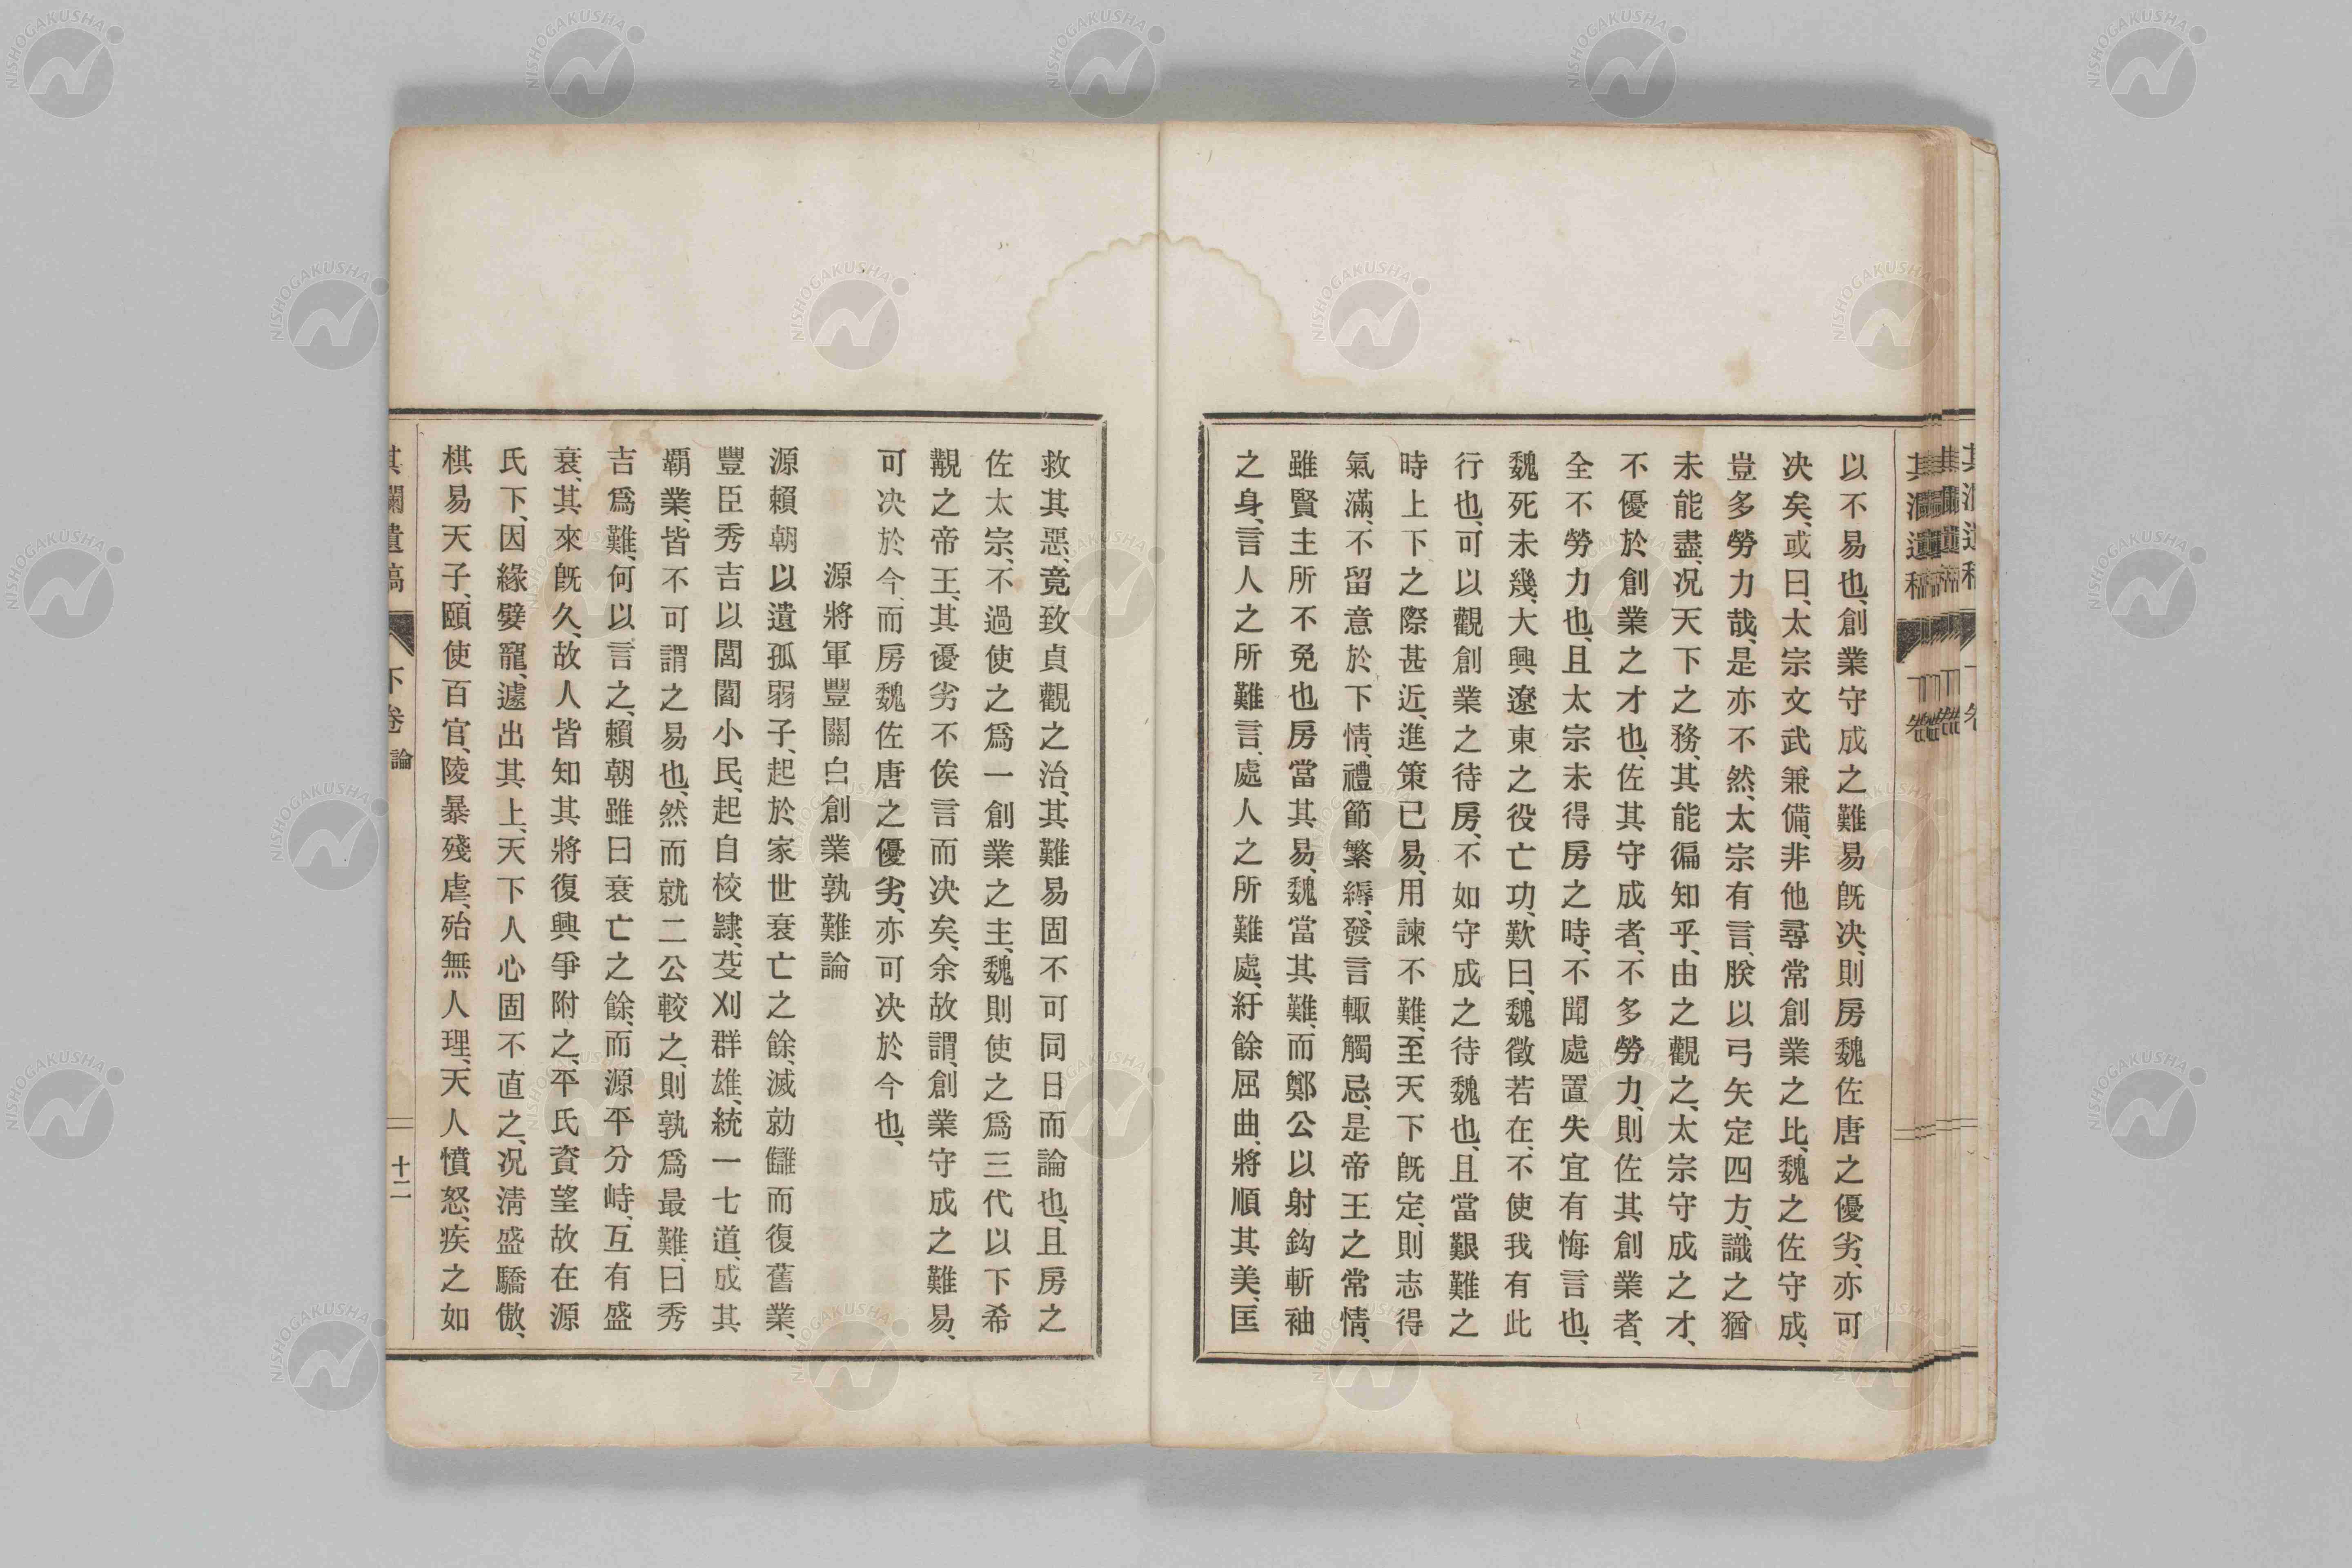 以不易也、創業守成之難易旣决、則房魏佐唐之優劣、亦可
决矣、或曰、太宗文武兼備、非他尋常創業之比、魏之佐守成、
豈多勞力哉、是亦不然、太宗有言、朕以弓矢定四方、識之猶
未能盡、况天下之務、其能徧知乎、由之觀之、太宗守成之才、
不優於創業之才也、佐其守成者、不多勞力、則佐其創業者、
全不勞力也、且太宗未得房之時、不聞處置失宜有悔言也、
魏死未幾、大興遼東之役亡功、歎曰、魏徵若在、不使我有此
行也、可以觀創業之待房、不如守成之待魏也、且當艱難之
時上下之際甚近、進策已易、用諫不難、至天下旣定、則志得
氣滿、不留意於下情、禮節繁縟、發言輙觸忌、是帝王之常情、
雖賢主所不免也房當其易、魏當其難、而鄭公以射鈎斬袖
之身、言人之所難言、處人之所難處、紆餘屈曲、將順其美、匡
救其惡、竟致貞觀之治、其難易固不可同日而論也、且房之
佐太宗、不過使之爲一創業之主、魏則使之爲三代以下希
覯之帝王、其優劣不俟言而决矣、余故謂、創業守成之難易、
可决於今、而房魏佐唐之優劣、亦可决於今也、
源將軍豐關白創業孰難論
源賴朝以遺孤弱子、起於家世衰亡之餘、滅勍讎而復舊業、
豐臣秀吉以閭閻小民、起自校隷、芟刈群雄、統一七道、成其
覇業、皆不可謂之易也、然而就二公較之、則孰爲最難、曰秀
吉爲難、何以言之、賴朝雖曰衰亡之餘、而源平分峙、互有盛
衰、其來旣久、故人皆知其將復興、爭附之、平氏資望故在源
氏下、因緣嬖寵、遽出其上、天下人心固不直之、况淸盛驕傲、
棋易天子、頤使百官、陵暴殘虐、殆無人理、天人憤怒、疾之如
下卷 論
十二